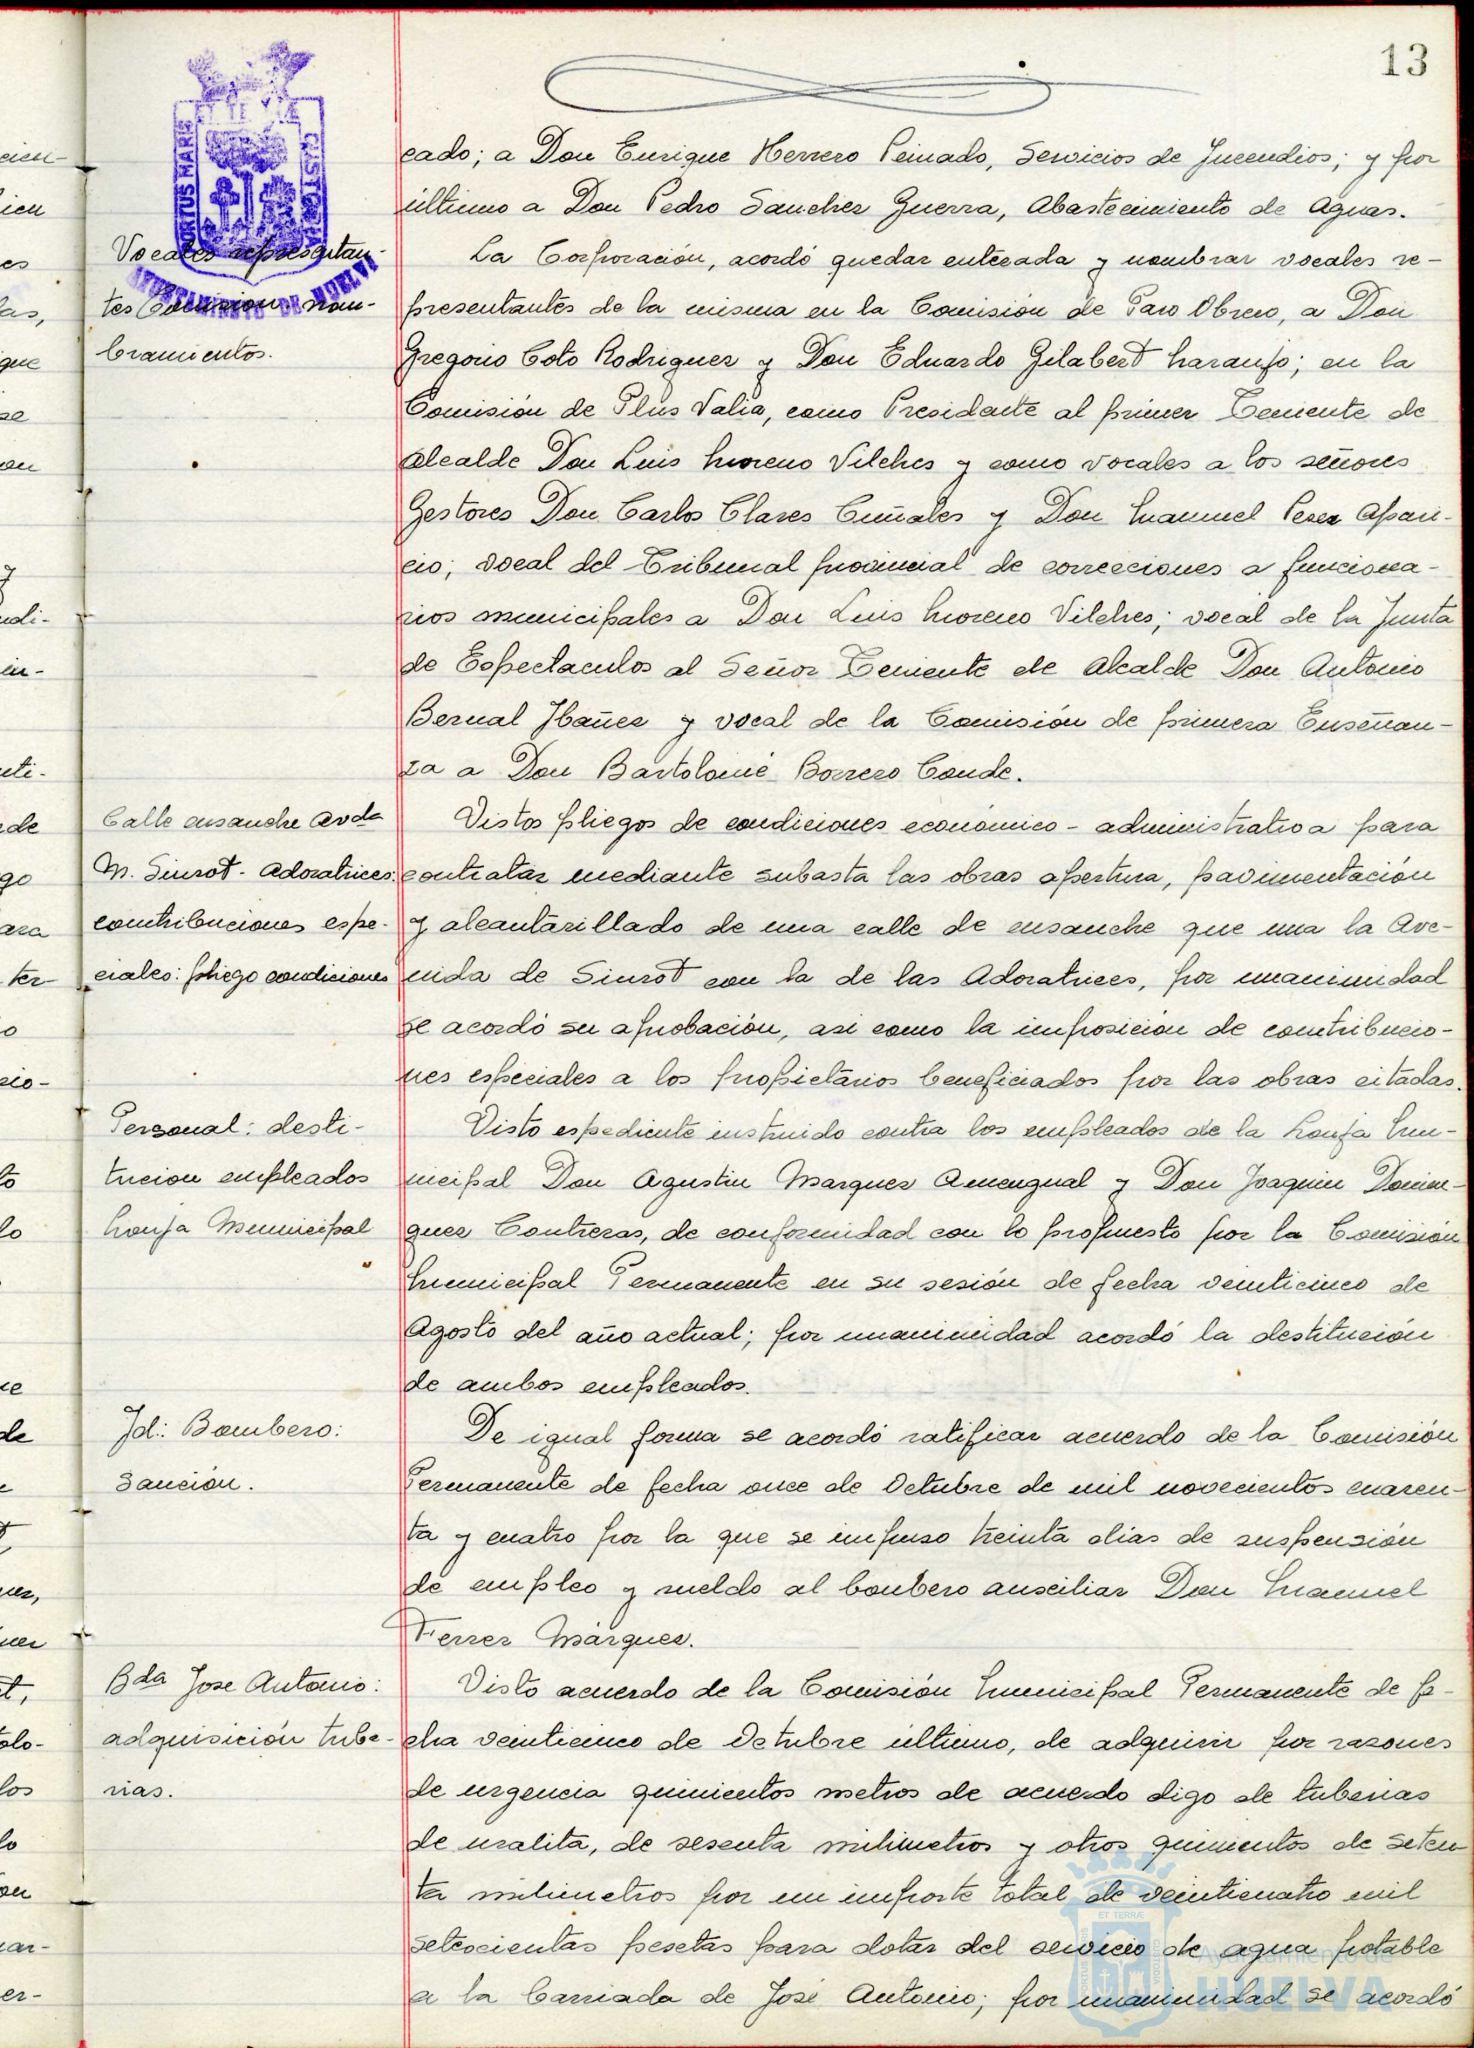 13
PORTUS MARIS ET TERRÆ CUSTODIA
AYUNTAMIENTO DE HUELVA
cado; a Don Enrique Herrero Peinado, Servicios de Incendios; y por
último a Don Pedro Sanchez Guerra, Abastecimiento de Aguas.
Vocales represetan-
tes Comision nom-
bramientos.
La Corporación, acordó quedar enterada y nombrar vocales re-
presentantes de la misma en la Comisión de Paro Obrero, a Don
Gregorio Coto Rodriguez y Don Eduardo Gilabert Naranjo; en la
Comisión de Plus Valia, como Presidente al primer Teniente de
Alcalde Don Luis Moreno Vilches y como vocales a los señores
Gestores Don Carlos Clares Cuñales y Don Manuel Perez Apari-
cio; vocal del Tribunal provincial de correcciones a funciona-
rios municipales a Don Luis Moreno Vilches; vocal de la Junta
de Espectaculos al Señor Teniente de Alcalde Don Antonio
Bernal Ibañez y vocal de la Comisión de primera Enseñan-
za a Don Bartolomé Borrero Conde.
Calle ensanche Avda
M. Siurot - Adoratrices:
contribuciones espe-
ciales: pliego condiciones
Vistos pliegos de condiciones económico-administrativa para
contratar mediante subasta las obras apertura, pavimentación
y alcantarillado de una calle de ensanche que una la Ave-
nida de Siurot con la de las Adoratrices, por unanimidad
se acordó su aprobación, asi como la imposición de contribucio-
nes especiales a los propietarios beneficiados por las obras citadas.
Personal: desti-
tucion empleados
Lonja Municipal
Visto espediente instruido contra los empleados de la Lonja Mu-
nicipal Don Agustin Marquez Amengual y Don Joaquin Domin-
guez Contreras, de conformidad con lo propuesto por la Comisión
Municipal Permanente en su sesión de fecha veinticinco de
Agosto del año actual; por unanimidad acordó la destitución
de ambos empleados.
Id: Bombero:
Sanción.
De igual forma se acordó ratificar acuerdo de la Comisión
Permanente de fecha once de Octubre de mil novecientos cuaren-
ta y cuatro por la que se impuso treinta dias de suspensión
de empleo y sueldo al bombero auxiliar Don Manuel
Ferrer Márquez.
Bda Jose Antonio:
adquisición tube-
rias.
Visto acuerdo de la Comisión Municipal Permanente de fe-
cha veinticinco de Octubre último, de adquirir por razones
de urgencia quinientos metros de acuerdo digo de tuberias
de uralita, de sesenta milimetros y otros quinientos de seten-
ta milimetros por un importe total de veinticuatro mil
setecientas pesetas para dotar del servicio de agua potable
a la barriada de José Antonio; por unanimidad se acordó
Ayuntamiento de
HUELVA